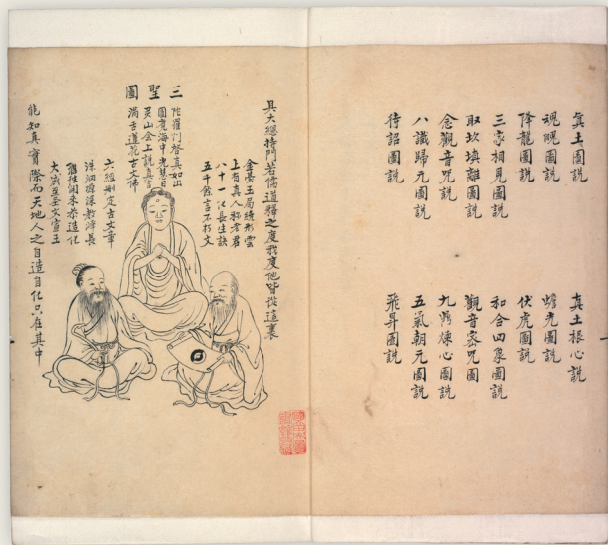 真土圖說　真土根心說
魂魄圖說　蟾光圖說
降龍圖說　伏虎圖說
三家相見圖說　和合四象圖說
取坎填離圖說　觀音密咒圖
念觀音咒圖說　九鼎煉心圖說
八識歸元圖說　五氣朝元圖說
待詔圖說　飛昇圖說
具大總持門若儒道釋之度我度他皆從這裏
金臺玉局繞彤雲
上有真人稱老君
八十一化長生訣
五千餘言不朽文
三聖圖
陀羅門啓真如出
圓覺海中光慧日
灵山会上說真言
滿舌蓮花古文佛
六經刪定古文章
洙泗源深教澤長
繼往開來參造化
大成至聖文宣王
能知真實際而天地人之自造自化只在其中